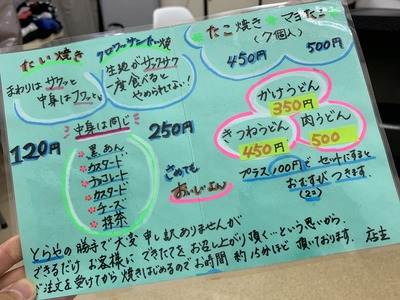 たい焼き
まわりはサクッと
中身はフワっと。
クロワッサンたい焼
生地がサクサク
一度食べると
やめられない!
たこ焼き
(7個入)
450円
マヨたこ
500円
中身は同じ
120円
250円
黒あん
カスタード
チョコレート
カスタード
チーズ
抹茶
さめても
おいしよん
かけうどん
350円
きつねうどん
450円
肉うどん
500
プラス100円でセットにすると
おむすびつきます。
(2コ)
とらやの勝手で大変申し訳ありませんが
できるだけお客様にできたてをお召し上がり頂く…という思いから、
ご注文を受けてから焼きはじめるのでお時間約15分ほど頂いております。 店主